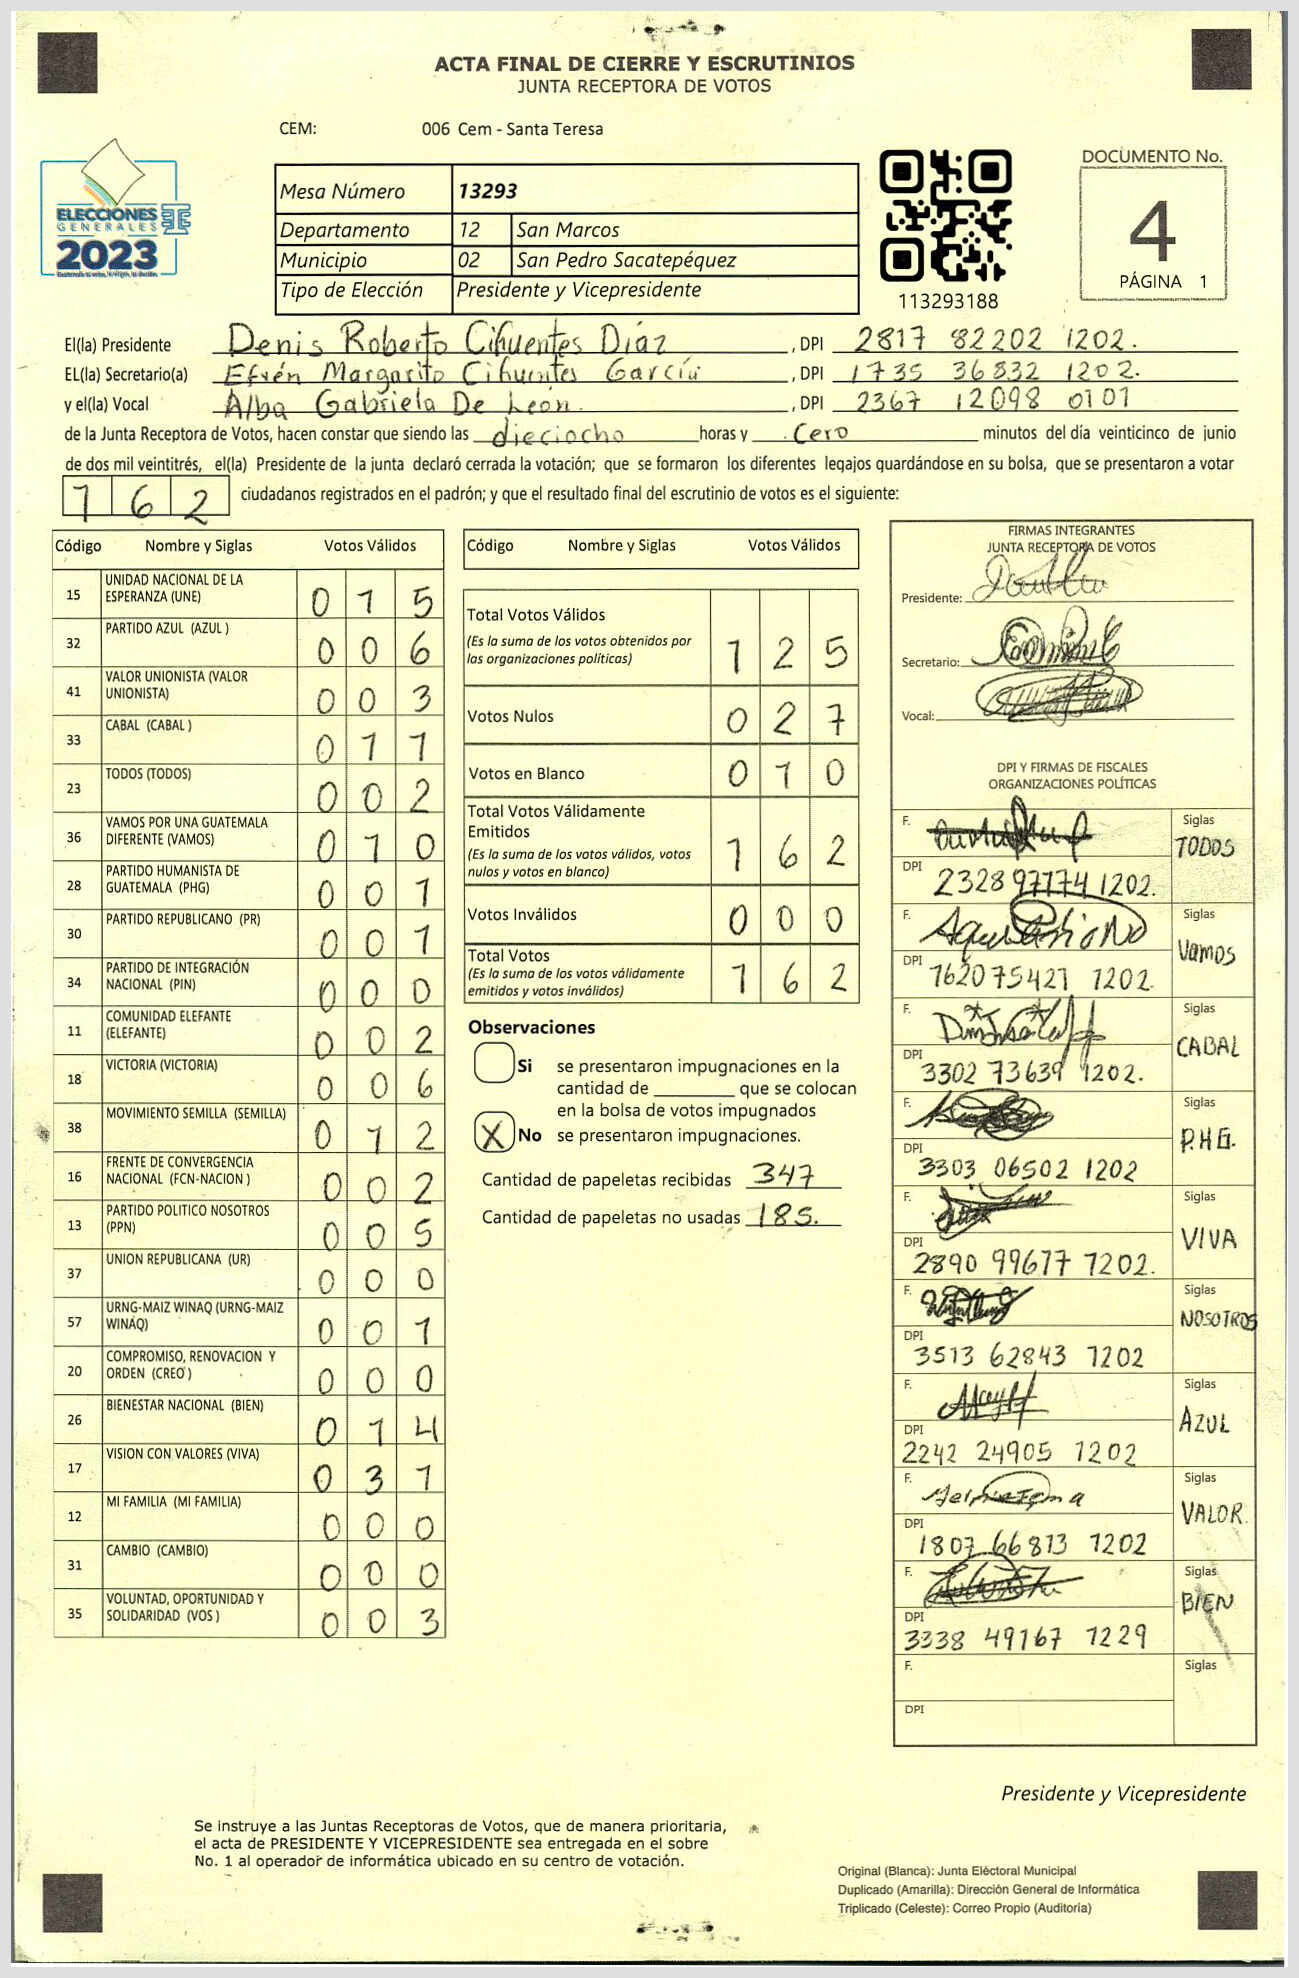 ACTA FINAL DE CIERRE Y ESCRUTINIOS
JUNTA RECEPTORA DE VOTOS
CEM: 006 Cem - Santa Teresa
ELECCIONES
GENERALES
2023
Mesa Número 13293
Departamento 12 San Marcos
Municipio 02 San Pedro Sacatepéquez
Tipo de Elección Presidente y Vicepresidente
113293188
DOCUMENTO No.
4
PÁGINA 1
El(la) Presidente Denis Roberto Cifuentes Díaz, DPI 2817 82202 1202.
EL(la) Secretario(a) Efrén Margarito Cifuentes García, DPI 1735 36832 1202.
y el(la) Vocal Alba Gabriela De León., DPI 2367 12098 0101
de la Junta Receptora de Votos, hacen constar que siendo las dieciocho horas y cero minutos del día veinticinco de junio
de dos mil veintitrés, el(la) Presidente de la junta declaró cerrada la votación; que se formaron los diferentes legajos guardándose en su bolsa, que se presentaron a votar
162 ciudadanos registrados en el padrón; y que el resultado final del escrutinio de votos es el siguiente:
Código Nombre y Siglas Votos Válidos
15 UNIDAD NACIONAL DE LA ESPERANZA (UNE) 0 1 5
32 PARTIDO AZUL (AZUL ) 0 0 6
41 VALOR UNIONISTA (VALOR UNIONISTA) 0 0 3
33 CABAL (CABAL ) 0 1 1
23 TODOS (TODOS) 0 0 2
36 VAMOS POR UNA GUATEMALA DIFERENTE (VAMOS) 0 1 0
28 PARTIDO HUMANISTA DE GUATEMALA (PHG) 0 0 1
30 PARTIDO REPUBLICANO (PR) 0 0 1
34 PARTIDO DE INTEGRACIÓN NACIONAL (PIN) 0 0 0
11 COMUNIDAD ELEFANTE (ELEFANTE) 0 0 2
18 VICTORIA (VICTORIA) 0 0 6
38 MOVIMIENTO SEMILLA (SEMILLA) 0 1 2
16 FRENTE DE CONVERGENCIA NACIONAL (FCN-NACION ) 0 0 2
13 PARTIDO POLITICO NOSOTROS (PPN) 0 0 5
37 UNION REPUBLICANA (UR) 0 0 0
57 URNG-MAIZ WINAQ (URNG-MAIZ WINAQ) 0 0 1
20 COMPROMISO, RENOVACION Y ORDEN (CREO ) 0 0 0
26 BIENESTAR NACIONAL (BIEN) 0 1 4
17 VISION CON VALORES (VIVA) 0 3 1
12 MI FAMILIA (MI FAMILIA) 0 0 0
31 CAMBIO (CAMBIO) 0 0 0
35 VOLUNTAD, OPORTUNIDAD Y SOLIDARIDAD (VOS ) 0 0 3
Código Nombre y Siglas Votos Válidos
Total Votos Válidos 1 2 5
(Es la suma de los votos obtenidos por
las organizaciones políticas)
Votos Nulos 0 2 7
Votos en Blanco 0 1 0
Total Votos Válidamente
Emitidos 1 6 2
(Es la suma de los votos válidos, votos
nulos y votos en blanco)
Votos Inválidos 0 0 0
Total Votos 1 6 2
(Es la suma de los votos válidamente
emitidos y votos inválidos)
Observaciones
Si se presentaron impugnaciones en la
cantidad de ________ que se colocan
en la bolsa de votos impugnados
X No se presentaron impugnaciones.
Cantidad de papeletas recibidas 347
Cantidad de papeletas no usadas 185.
FIRMAS INTEGRANTES
JUNTA RECEPTORA DE VOTOS
Presidente:
Secretario:
Vocal:
DPI Y FIRMAS DE FISCALES
ORGANIZACIONES POLÍTICAS
F. Siglas TODOS
DPI 2328 97174 1202.
F. Siglas Vamos
DPI 1620 75421 1202.
F. Siglas CABAL
DPI 3302 73639 1202.
F. Siglas P.H.G.
DPI 3303 06502 1202
F. Siglas VIVA
DPI 2890 99677 1202.
F. Siglas NOSOTROS
DPI 3513 62843 1202
F. Siglas AZUL
DPI 2242 24905 1202
F. Siglas VALOR.
DPI 1807 66813 1202
F. Siglas BIEN
DPI 3338 49167 1229
F. Siglas
DPI
Presidente y Vicepresidente
Se instruye a las Juntas Receptoras de Votos, que de manera prioritaria,
el acta de PRESIDENTE Y VICEPRESIDENTE sea entregada en el sobre
No. 1 al operador de informática ubicado en su centro de votación.
Original (Blanca): Junta Eléctoral Municipal
Duplicado (Amarilla): Dirección General de Informática
Triplicado (Celeste): Correo Propio (Auditoría)